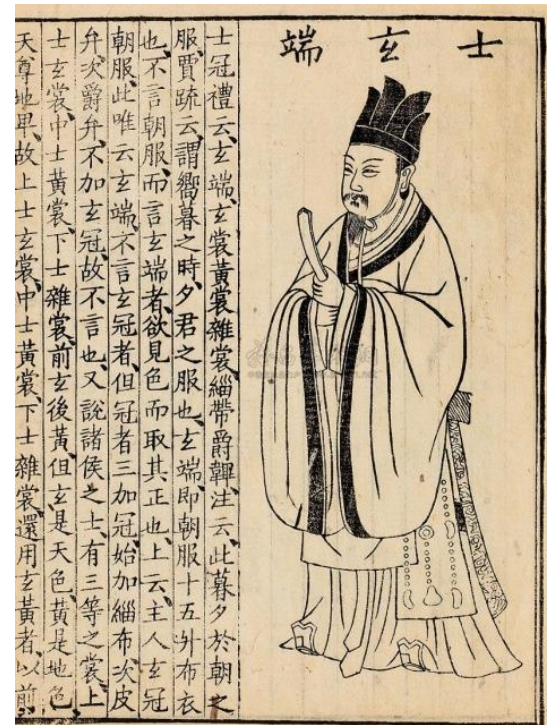 士玄端
士冠禮云、玄端、玄裳、黃裳、雜裳、緇帶、爵韠、注云、此暮夕於朝之
服、賈疏云、謂嚮暮之時、夕君之服也、玄端即朝服十五升布衣
也、不言朝服、而言玄端者、欲見色而取其正也、上云、主人玄冠
朝服、此唯云玄端、不言玄冠者、但冠者三加冠、始加緇布、次皮
弁、次爵弁、不加玄冠、故不言也、又說諸侯之士、有三等之裳、上
士玄裳、中士黃裳、下士雜裳、前玄後黃、但玄是天色、黃是地色
天尊地卑、故上士玄裳、中士黃裳、下士雜裳、還用玄黃者、以前